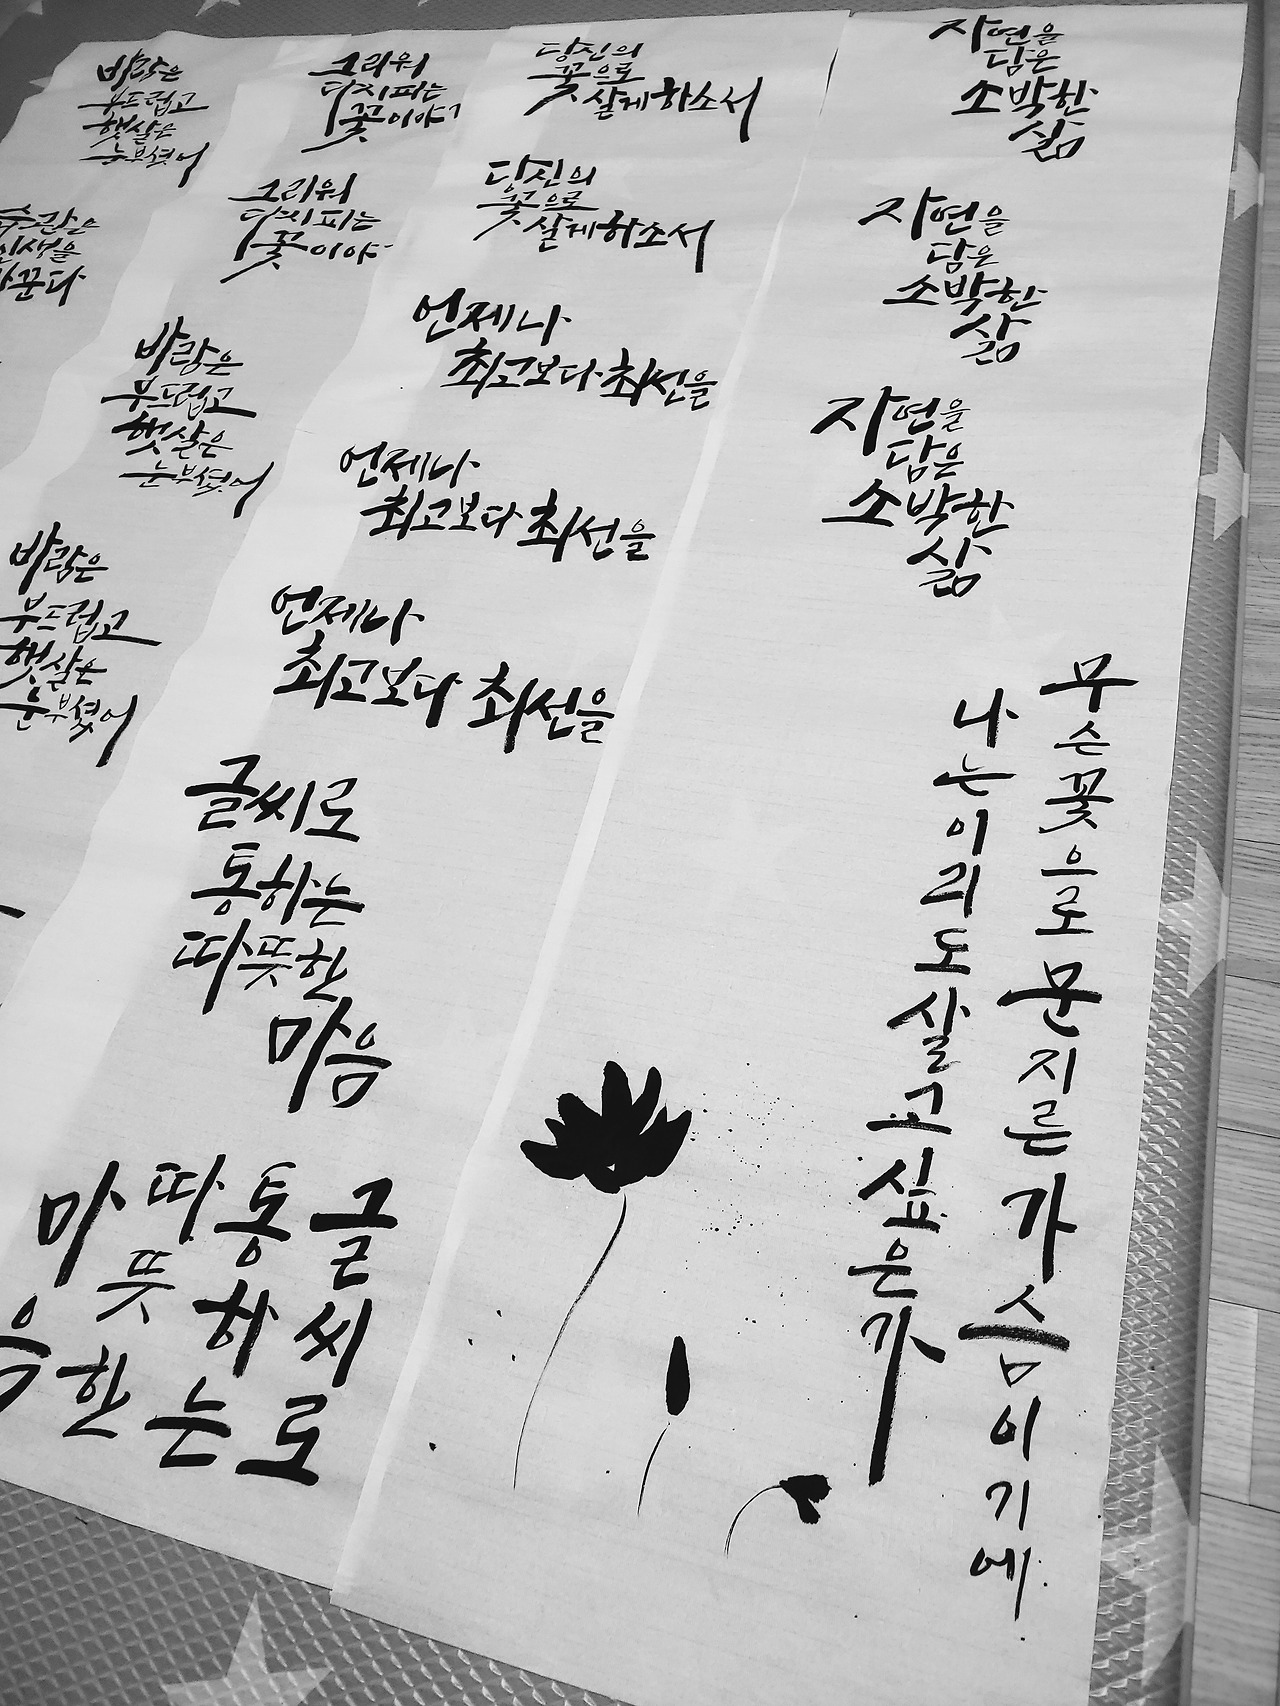 바람은
부드럽고
햇살은
눈부셨어
그리워
다시 피는
꽃이야
당신의
꽃으로
살게 하소서
자연을
담은
소박한
삶
순간은
인생을
바꾼다
그리워
다시 피는
꽃이야
당신의
꽃으로
살게 하소서
자연을
담은
소박한
삶
바람은
부드럽고
햇살은
눈부셨어
언제나
최고보다 최선을
자연을
담은
소박한
삶
언제나
최고보다 최선을
바람은
부드럽고
햇살은
눈부셨어
언제나
최고보다 최선을
글씨로
통하는
따뜻한
마음
무슨 꽃으로 문지른 가슴이기에
나는 이리도 살고 싶은가
글씨로
통하는
따뜻한
마음